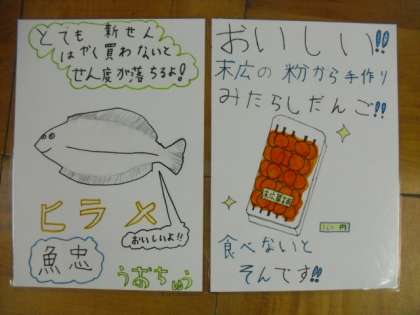 とても 新せん
はやく買わないと
せん度が落ちるよ!
ヒラメ
おいしいよ!!
魚忠
うおちゅう
おいしい!!
末広の粉から手作り
みたらしだんご!!
食べないと
そんです!!